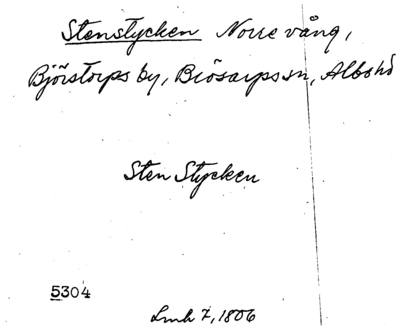 Stenstycken Norre vång,
Björstorps by, Brösarps sn, Albo hd
Sten Stycken
5304
Lmh 7, 1806